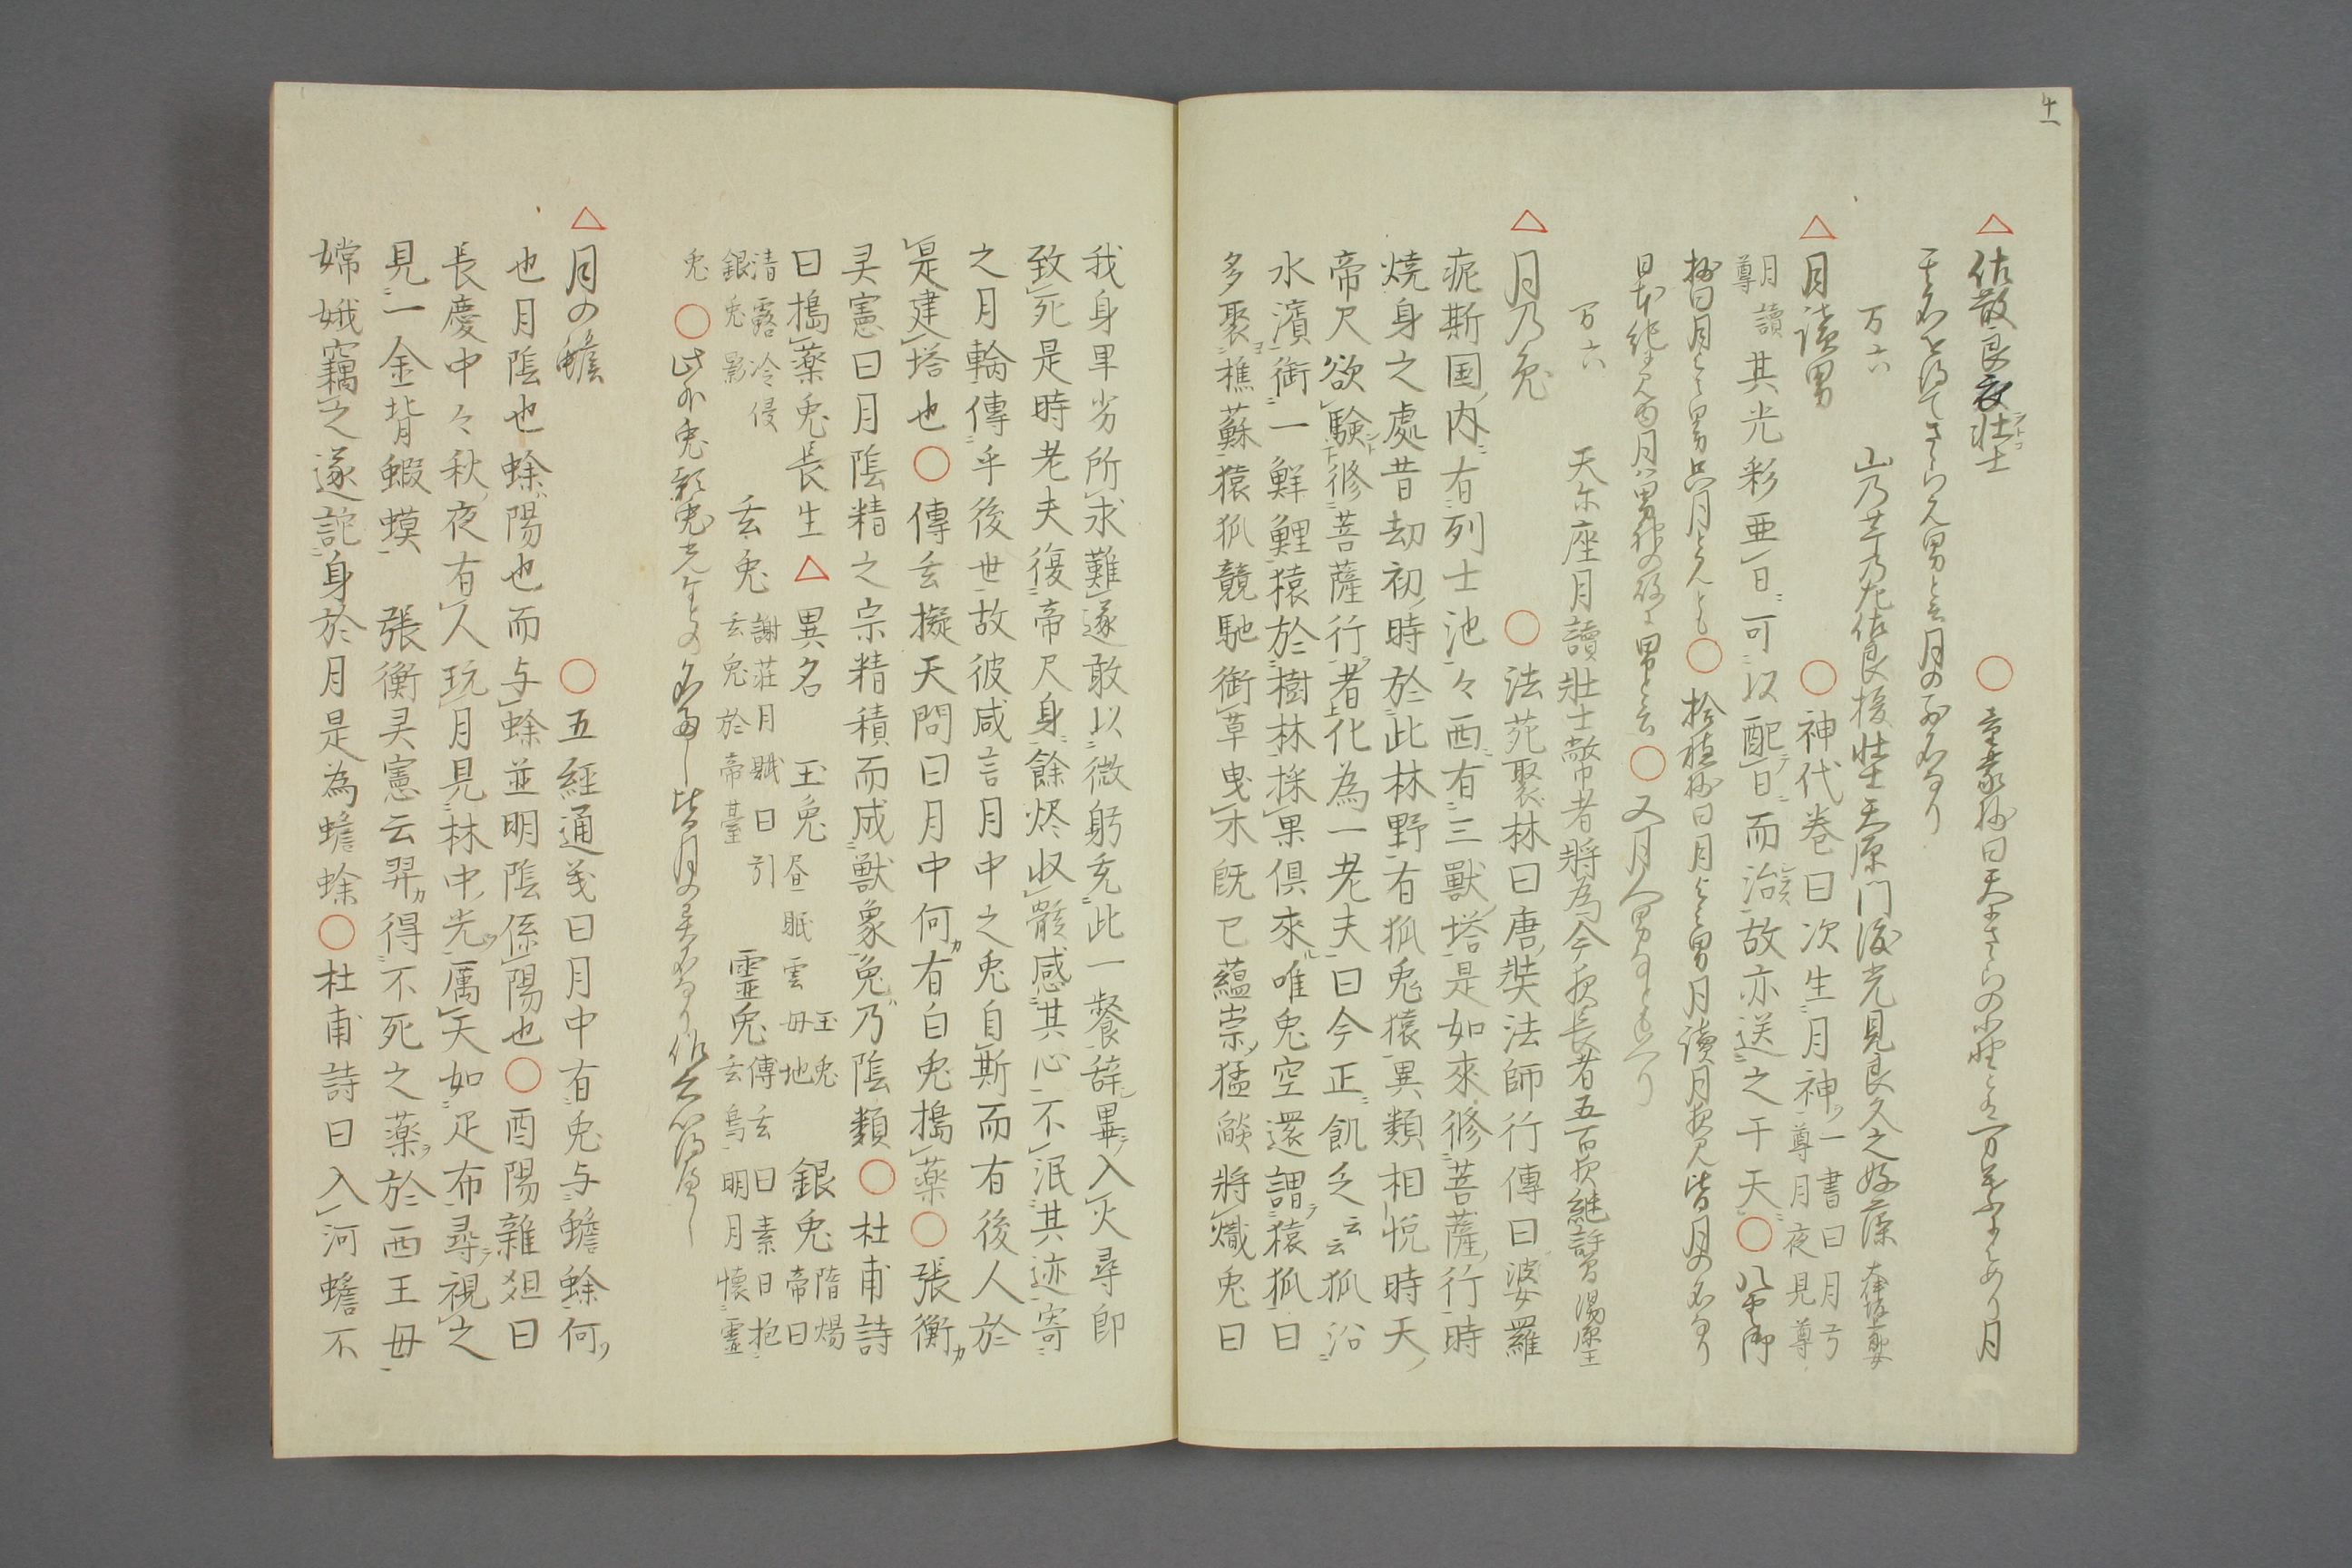 佐散良衣壮士
○童蒙抄曰天にさゝらの小野と云万葉にあり月
其名を得てさゝらえ男と云月の別名なり
万六 山乃葉乃左佐良榎壮士天原門渡光見良久之好藻 大伴坂上郎女
△月読男 ○神代巻曰次生月神 一書曰月弓尊月夜見尊
月読尊 其光彩亜日可以配日而治故亦送之于天○八雲御
抄曰月よみ男只月をも○拾穂抄曰月よみ男月読月夜見皆月の名なり
日本紀に
万六 天尓座月読壮士幣者将為今夜長者五百夜継許曽 湯原王
△月乃兔 ○法苑聚林曰唐奘法師行傳曰婆羅
痆斯国内有列士池々西有三獣塔是如來修菩薩行時
焼身之處昔劫初時於此林野有狐兔猿異類相悦時天
帝尺欲験修菩薩行者化為一老夫曰今正飢乏云云狐沿
水濱銜一鮮鯉猿於樹林採果俱來唯兔空還謂猿狐曰
多聚樵蘇猿狐競馳銜草曳木既已蘊崇猛燄将熾兔曰
我身卑劣所求難遂敢以微躬充此一餐辞畢入火尋即
致死是時老夫復帝尺身餘燼収骸感其心不泯其迹寄
之月輪傳乎後世故彼咸言月中之兔自斯而有後人於
是建塔也○傳玄擬天問曰月中何有白兔搗薬○張衡
灵憲曰月陰精之宗精積而成獣象兔乃陰類○杜甫詩
曰搗薬兔長生△異名 玉兔 昼眠雲母地玉兔 銀兔 隋煬帝曰
清露冷侵銀兔影 玄兔 謝荘月賦曰引玄兔於帝臺 霊兔 傳玄曰素日抱玄烏明月懐霊
兔
△月の蟾 ○五經通義曰月中有兔与蟾蜍何
也月陰也蜍陽也而与蜍並明陰係陽也○酉陽雜爼曰
長慶中々秋夜有人玩月見林中光属天如疋布尋視之
見一金背蝦蟆 張衡灵憲云羿得不死之薬於西王毋
嫦娥竊之遂託身於月是為蟾蜍○杜甫詩曰入河蟾不